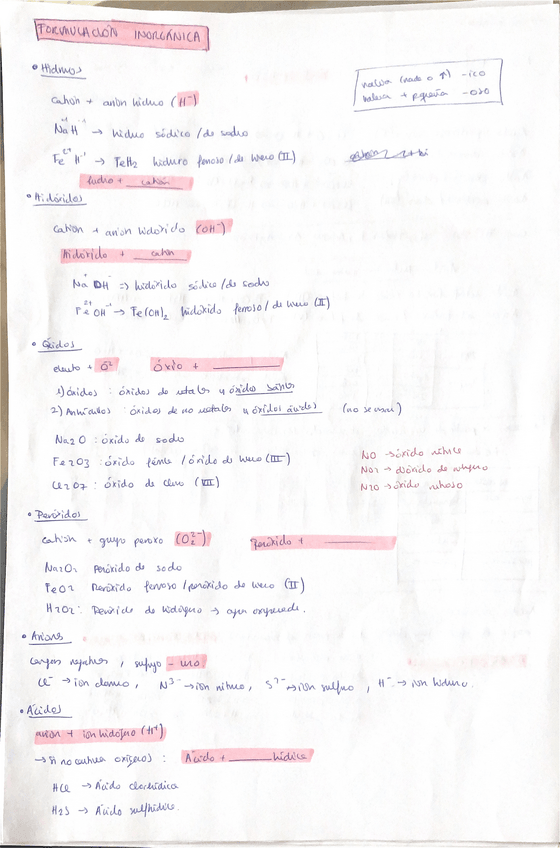 FORMULACIÓN INORGÁNICA
• Hidruros
valencia (nada o ↑) -ico
valencia + pequeña -oso
catión + anión hidruro (H⁻)
Na⁺¹H⁻¹ → hidruro sódico / de sodio
Fe²⁺ H⁻¹ → FeH₂ hidruro ferroso / de hierro (II)
hidruro + catión
• Hidróxidos
catión + anión hidróxido (OH⁻)
Hidróxido + catión
Na⁺ OH⁻ => hidróxido sódico / de sodio
Fe²⁺ OH⁻ → Fe(OH)₂ hidróxido ferroso / de hierro (II)
• Óxidos
elemento + O²⁻ óxido + ______
1) óxidos: óxidos de metales u óxidos básicos
2) Anhídridos: óxidos de no metales u óxidos ácidos (no se usa)
Na₂O: óxido de sodio
Fe₂O₃: óxido férrico / óxido de hierro (III)
Cl₂O₇: óxido de cloro (VII)
NO → óxido nítrico
NO₂ → dióxido de nitrógeno
N₂O → óxido nitroso
• Peróxidos
catión + grupo peroxo (O₂²⁻) Peróxido + ______
Na₂O₂ Peróxido de sodio
FeO₂ Peróxido ferroso / peróxido de hierro (II)
H₂O₂: Peróxido de hidógeno → agua oxigenada.
• Aniones
Cargas negativas, sufijo - uro
Cl⁻ → ion cloruro, N³⁻ → ion nitruro, S²⁻ → ion sulfuro, H⁻ → ion hidruro.
• Ácidos
anión + ión hidógeno (H⁺)
→ Si no contiene oxígeno: Ácido + ______ hídrico
HCl → Ácido clorhídrico
H₂S → Ácido sulfhídrico.